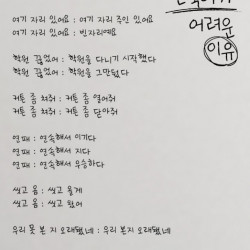 어려운
이유
여기 자리 있어요 : 여기 자리 주인 있어요
여기 자리 있어요 : 빈자리예요
학원 끊었어 : 학원을 다니기 시작했다
학원 끊었어 : 학원을 그만뒀다
커튼 좀 쳐줘 : 커튼 좀 열어줘
커튼 좀 쳐줘 : 커튼 좀 닫아줘
연패 : 연속해서 이기다
연패 : 연속해서 지다
연패 : 연속해서 우승하다
씻고 옴 : 씻고 올게
씻고 옴 : 씻고 왔어
우리 못 본 지 오래됐네 : 우리 본 지 오래됐네